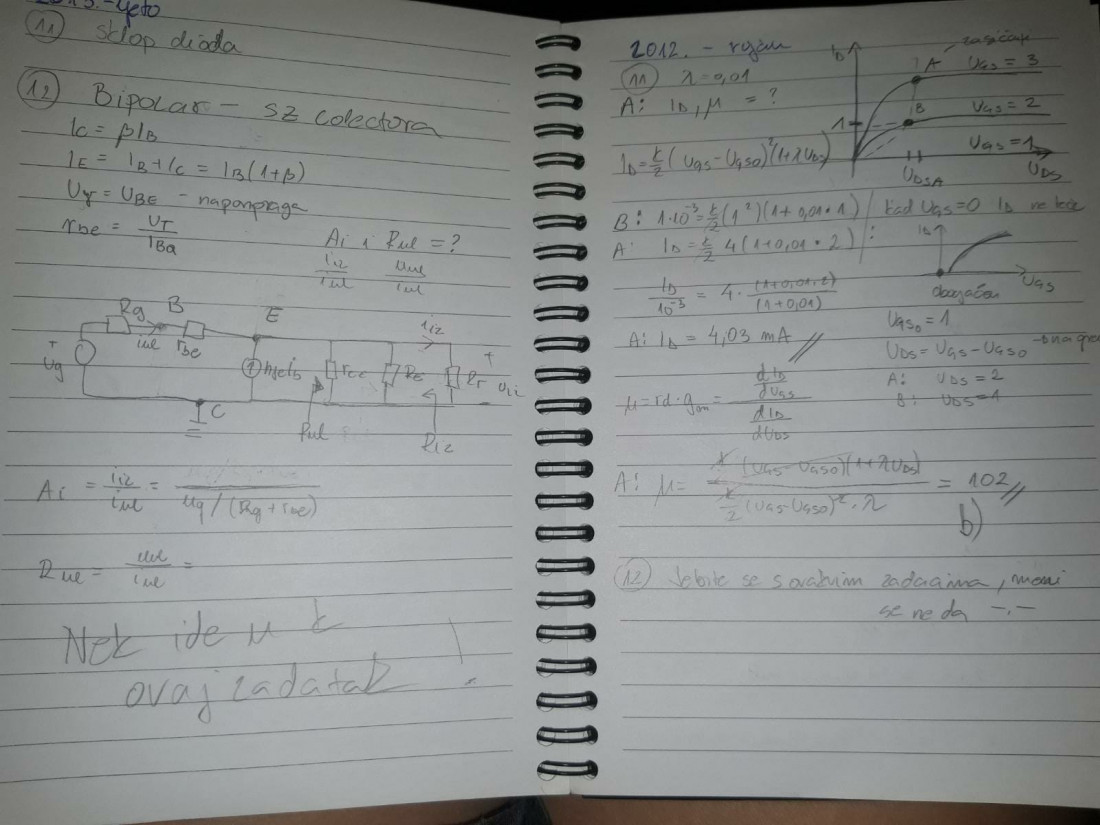 2013.-ljeto
11 sklop dioda
12 Bipolar - sz colectora
Ic = βIB
IE = IB+Ic = IB(1+β)
Uγ = UBE - naponpraga
rbe = UT/IBa
Ai i Rul = ?
iiz/iul uul/iul
Rg B E iiz
+ Ug iul rbe hfeib rce RE RT + uiz
C Rul Riz
Ai = iiz/iul = /ug/(Rg+rbe)
Rul = uul/iul =
Nek ide u k
ovaj zadatak !
2012. - rujan
11 λ=0,01
A: ID, μ = ?
ID=k/2(UGS-UGS0)²(1+λUDS)
ID zasićenje
A UGS = 3
1 B UGS = 2
UGS = 1
UDSA UDS
B: 1·10⁻³=k/2(1²)(1+0,01·1) / kad UGS=0 ID ne teče
A: ID=k/2 4(1+0,01·2) /:
ID/10⁻³ = 4·(1+0,01·2)/(1+0,01)
ID UGS
obogaćeni
A: ID = 4,03 mA //
UGS0=1
UDS=UGS-UGS0
A: UDS=2
B: UDS=1
μ=rd·gm= dID/dUGS / dID/dUDS
A: μ= k(UGS-UGS0)(1+λUDS) / k/2(UGS-UGS0)²·λ = 102 //
b)
12 Jebite se s ovakvim zadacima, meni
se ne da -.-